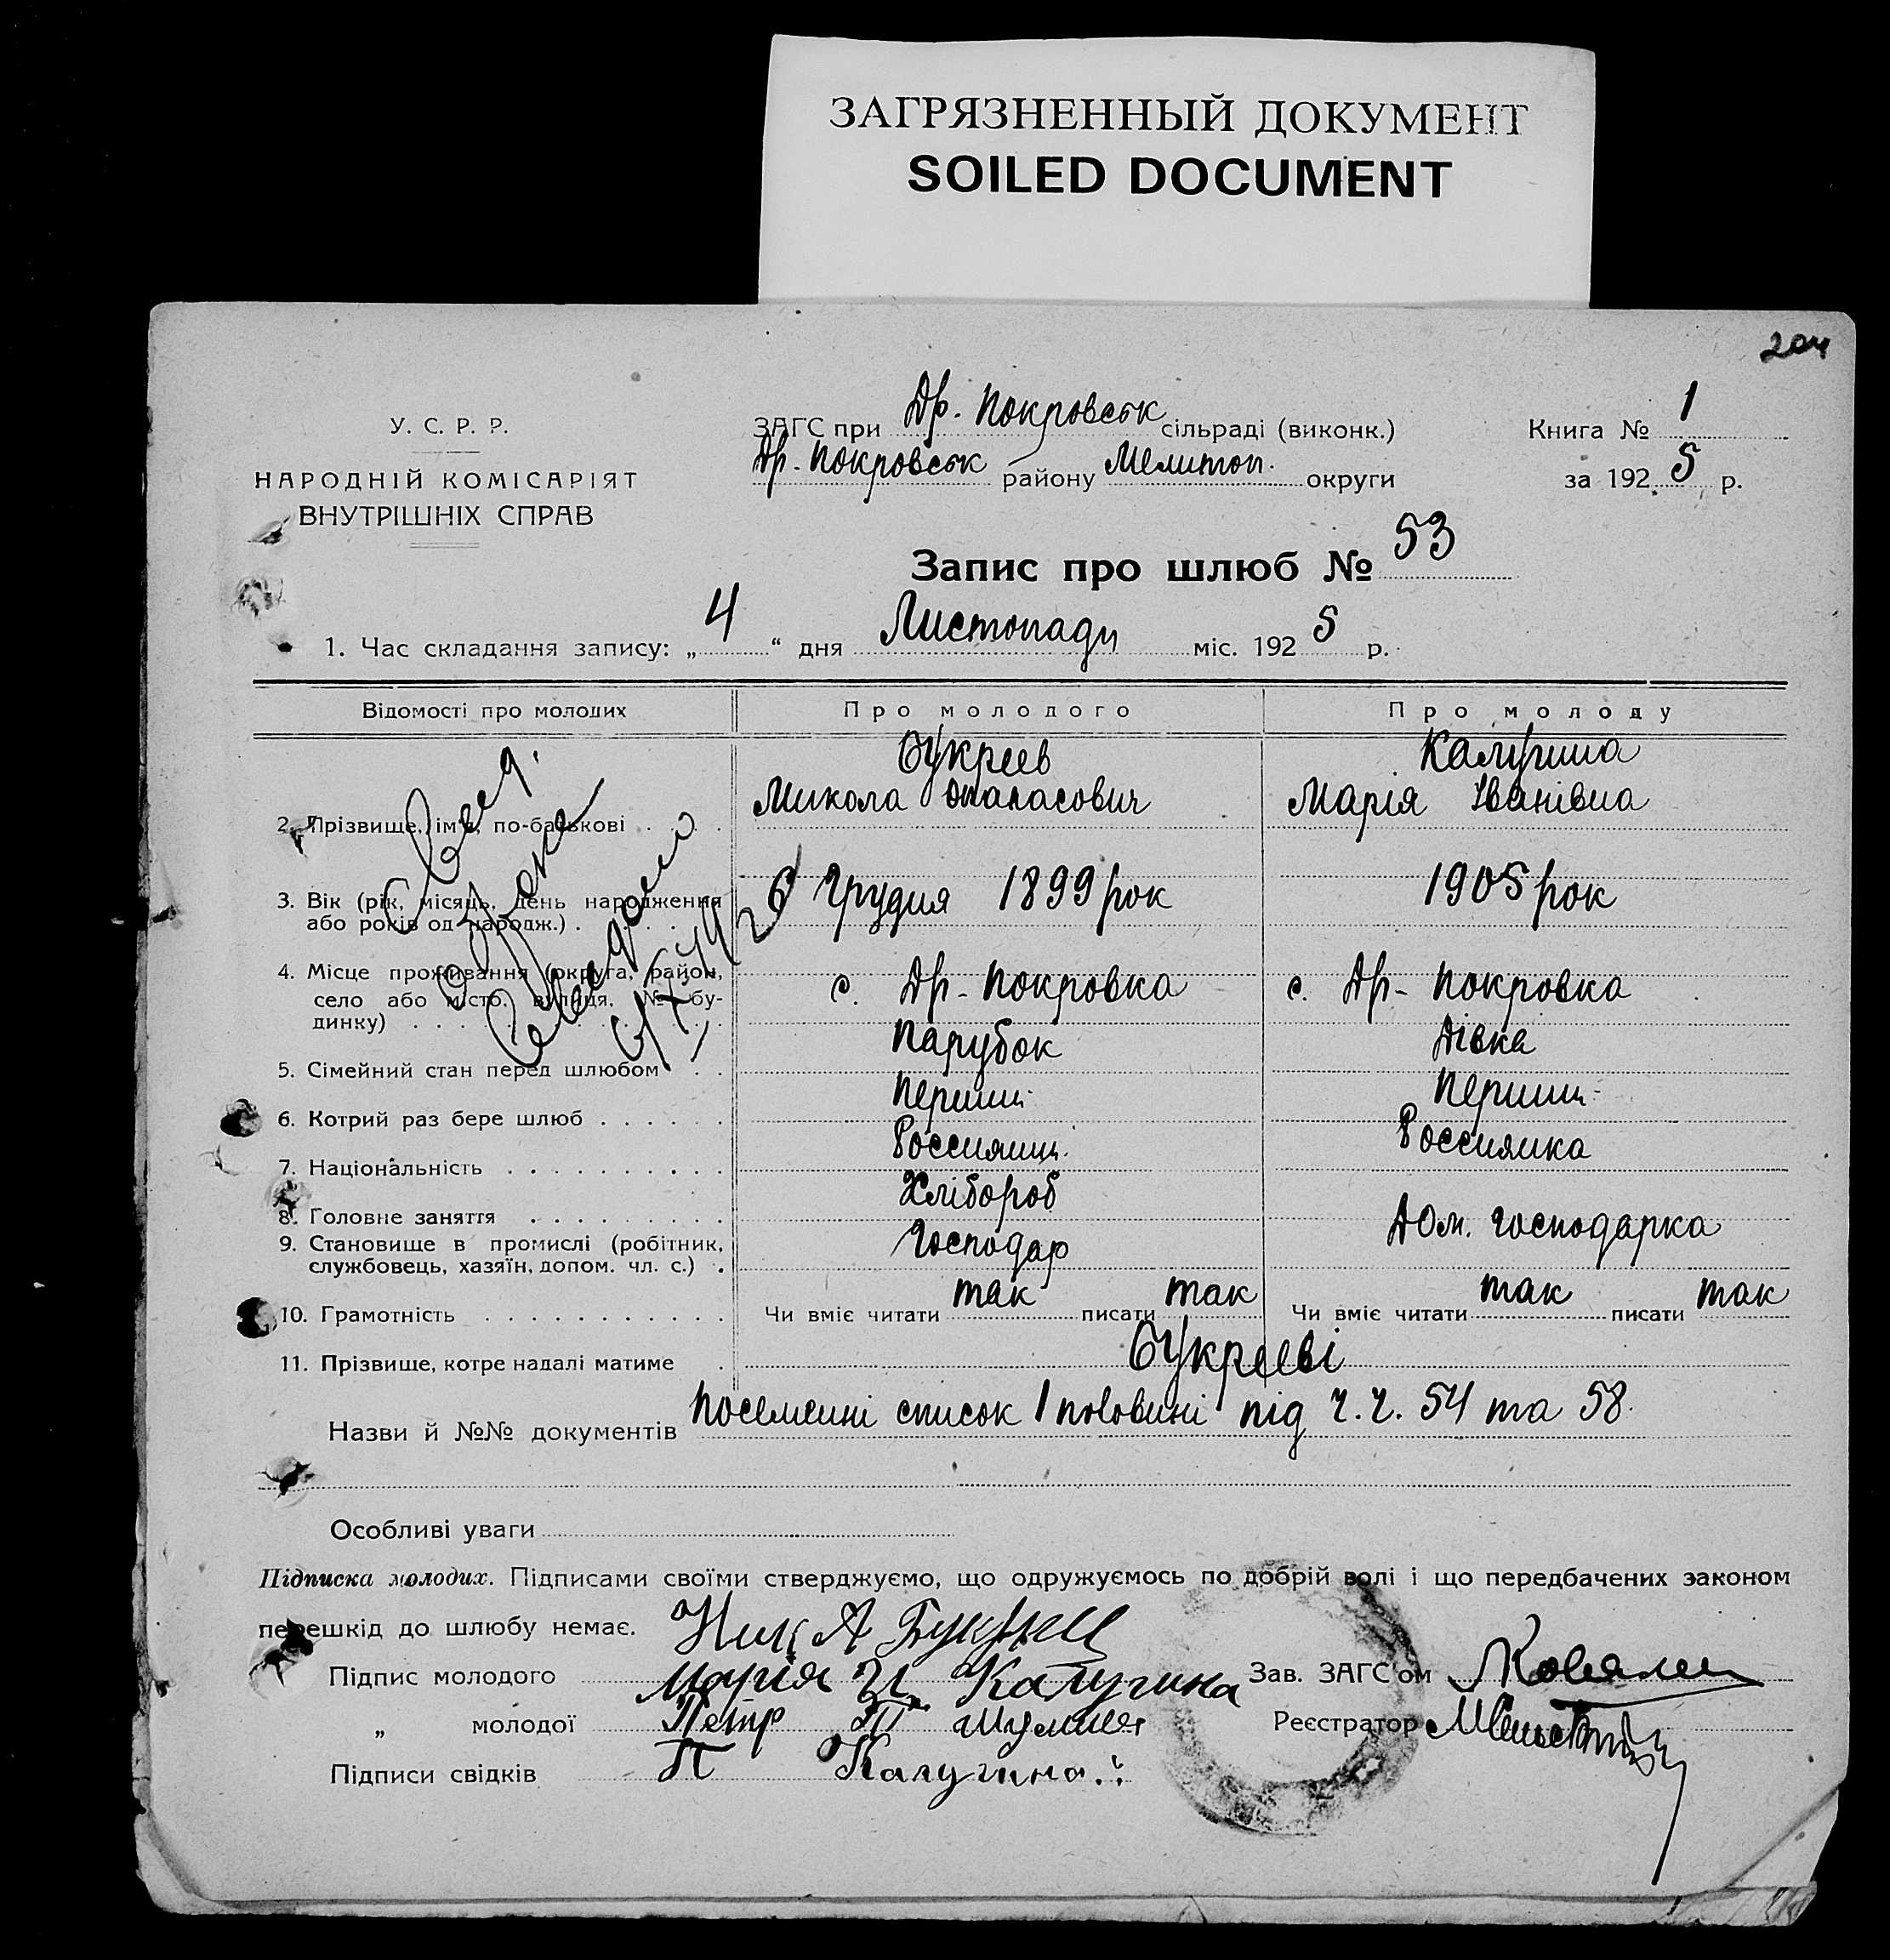 ЗАГРЯЗНЕННЫЙ ДОКУМЕНТ
SOILED DOCUMENT
204
У. С. Р. Р.
НАРОДНІЙ КОМІСАРІЯТ
ВНУТРІШНІХ СПРАВ
ЗАГС при Др. Покровськ сільраді (виконк.)
Др. Покровськ району Мелитоп. округи
Книга № 1
за 1925 р.
Запис про шлюб № 53
1. Час складання запису: „4“ дня Листопаду міс. 1925 р.
Відомості про молодих Про молодого Про молоду
2. Прізвище, ім'я, по-батькові Букреев Микола Опанасович Калугина Марія Іванівна
3. Вік (рік, місяць, день народження або років од народж.) 6 Грудня 1899 рок 1905 рок
4. Місце проживання (округа, район, село або місто, вулиця, № бу-динку) с. Др-Покровка с. Др-Покровка
5. Сімейний стан перед шлюбом Парубок Дівка
6. Котрий раз бере шлюб Перший Перший
7. Національність Россиянин Россиянка
8. Головне заняття Хлібороб
9. Становище в промислі (робітник, службовець, хазяїн, допом. чл. с.) Господар Дом. господарка
10. Грамотність Чи вміє читати так писати так Чи вміє читати так писати так
11. Прізвище, котре надалі матиме Букрееві
Назви й №№ документів посемейні список 1 половині під ч.ч. 54 та 58.
Особливі уваги
Підписка молодих. Підписами своїми стверджуємо, що одружуємось по добрій волі і що передбачених законом
перешкід до шлюбу немає.
Підпис молодого Ник А
„ молодої Марія И Калугина
Підписи свідків Петр
П Калугина
Зав. ЗАГС'ом
Реєстратор